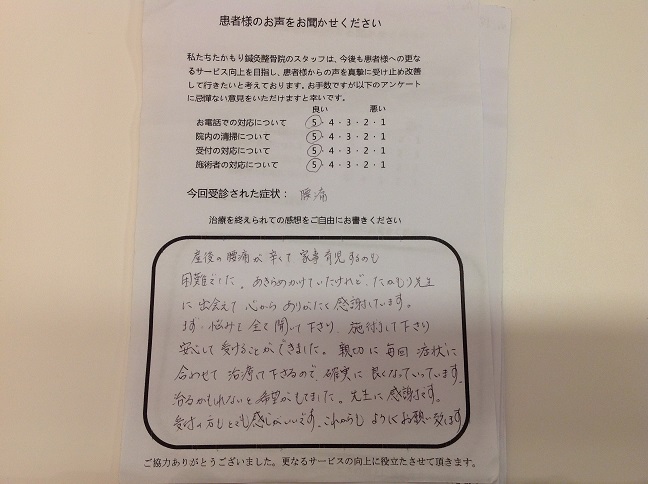 患者様のお声をお聞かせください
私たちたかもり鍼灸整骨院のスタッフは、今後も患者様への更な
るサービス向上を目指し、患者様からの声を真摯に受け止め改善
して行きたいと考えております。お手数ですが以下のアンケート
に忌憚ない意見をいただけますと幸いです。
良い 悪い
お電話での対応について 5・4・3・2・1
院内の清掃について 5・4・3・2・1
受付の対応について 5・4・3・2・1
施術者の対応について 5・4・3・2・1
今回受診された症状： 腰痛
治療を終えられての感想をご自由にお書きください
産後の腰痛が辛くて家事育児するのも
困難でした。あきらめかけていたけれど、たかもり先生
に出会えて心からありがたく感謝しています。
まず、悩みを全て聞いて下さり、施術して下さり
安心して受けることができました。親切に毎回症状に
合わせて治療して下さるので、確実に良くなっていっています。
治るかもしれないと希望がもてました。先生に感謝です。
受付の方もとても感じがいいです。これからもよろしくお願い致します
ご協力ありがとうございました。更なるサービスの向上に役立たさせて頂きます。